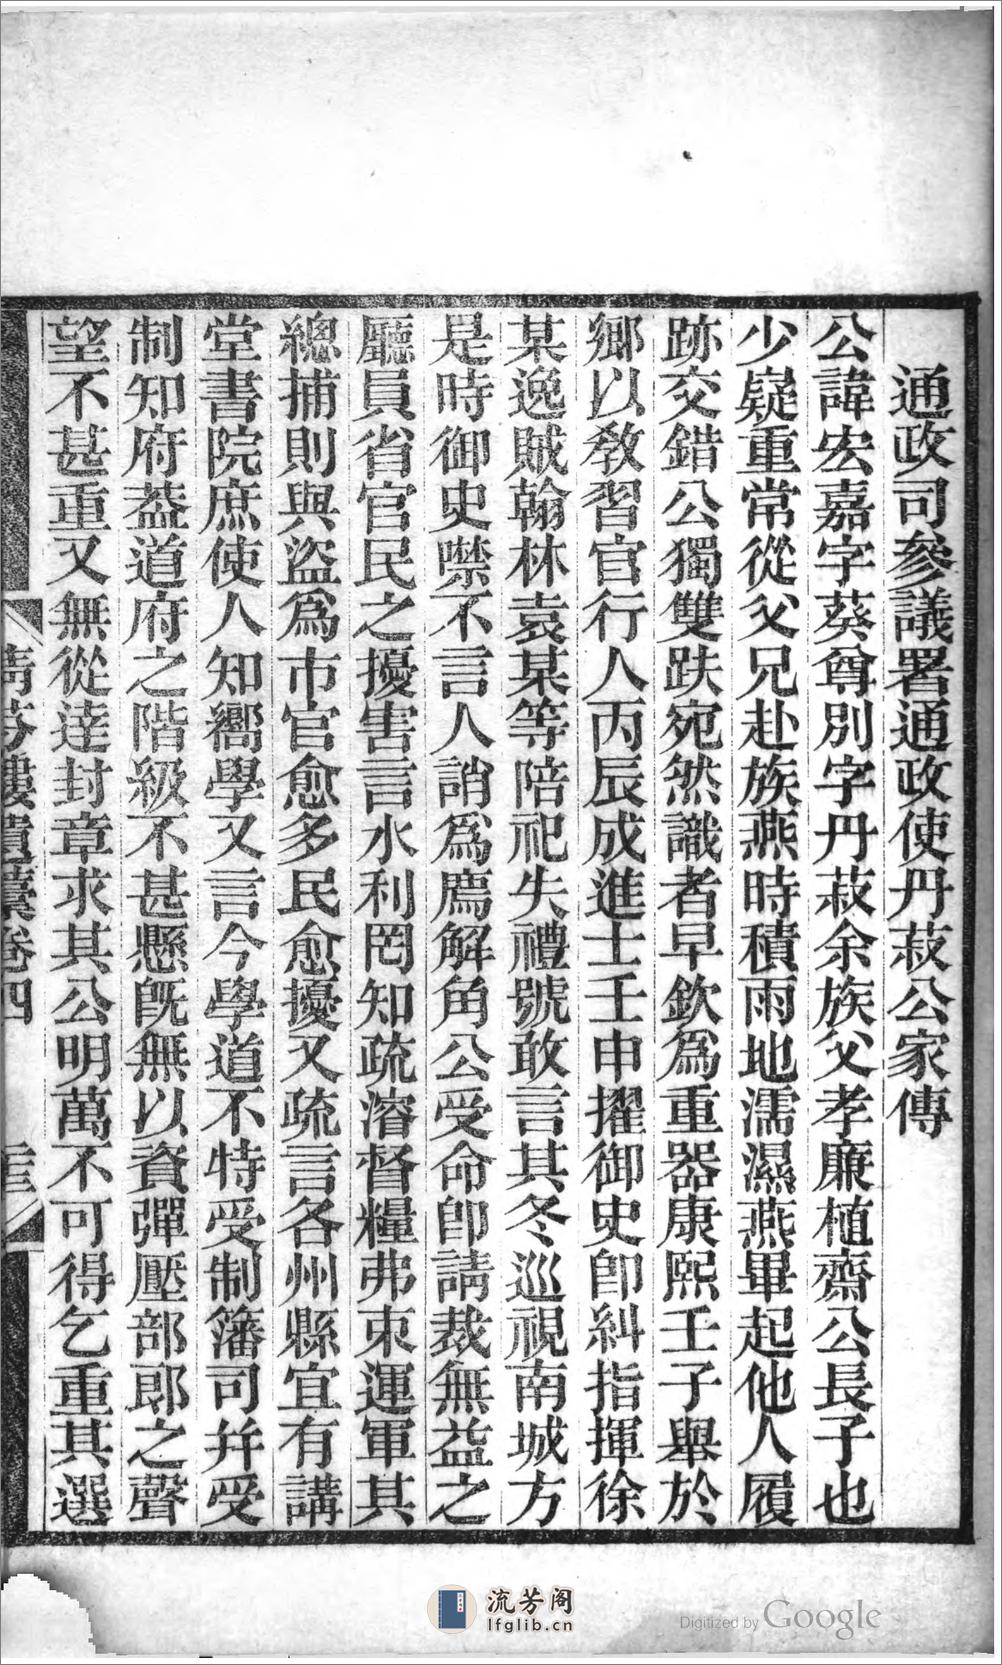 通政司參議署通政使丹菽公家傳
公諱宏嘉字葵尊別字丹菽余族父孝廉植齋公長子也
少嶷重常從父兄赴族燕時積雨地濡濕燕畢起他人履
跡交錯公獨雙趺宛然識者早欽爲重器康熙壬子舉於
鄉以教習官行人丙辰成進士壬申擢御史卽糾指揮徐
某逸賊翰林袁某等陪祀失禮號敢言其冬巡視南城方
是時御史噤不言人誚爲廌解角公受命卽請裁無益之
廳員省官民之擾害言水利罔知疏濬督糧弗束運軍其
總捕則與盜爲市官愈多民愈擾又疏言各州縣宜有講
堂書院庶使人知嚮學又言今學道不特受制藩司幷受
制知府葢道府之階級不甚懸旣無以資彈壓部郎之聲
望不甚重又無從達封章求其公明萬不可得乞重其選
清芬樓遺藁卷四
流芳阁
lfglib.cn
Digitized by Google